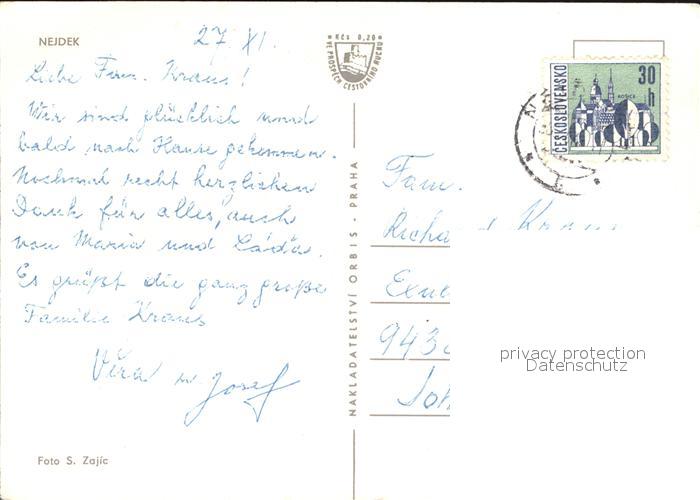 NEJDEK
27. XI.
Kčs 0,20
VE PROSPĚCH CESTOVNÍHO RUCHU
Liebe Fam. Kraus!
Wir sind glücklich und
bald nach Hause gekommen.
Nochmal recht herzlichen
Dank für alles, auch
von Maria und
Es grüßt die ganz große
Familie Kraus
Věra u Josef
Foto S. Zajíc
NAKLADATELSTVÍ ORBIS - PRAHA
ČESKOSLOVENSKO
30 h
KOŠICE
Fam.
Richa
943
Joh
privacy protection
Datenschutz